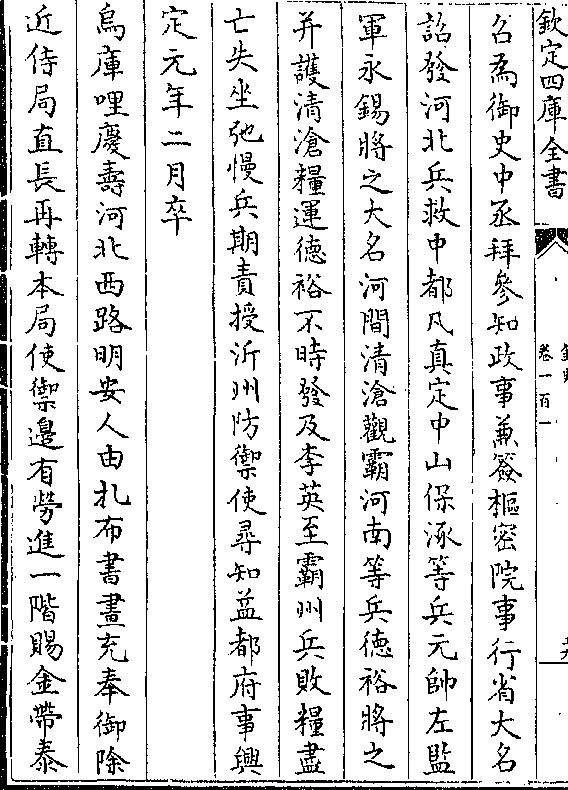 欽定四庫全書
卷一百一
召為御史中丞拜參知政事兼簽樞密院事行省大名
詔發河北兵救中都凡真定中山保涿等兵元帥左監
軍永錫將之大名河間清滄觀霸河南等兵德裕將之
并護清滄糧運德裕不時發及李英至霸州兵敗糧盡
亡失坐弛慢兵期責授沂州防禦使尋知益都府事興
定元年二月卒
烏庫哩慶壽河北西路明安人由扎布書畫充奉御除
近侍局直長再轉本局使禦邊有勞進一階賜金帶泰